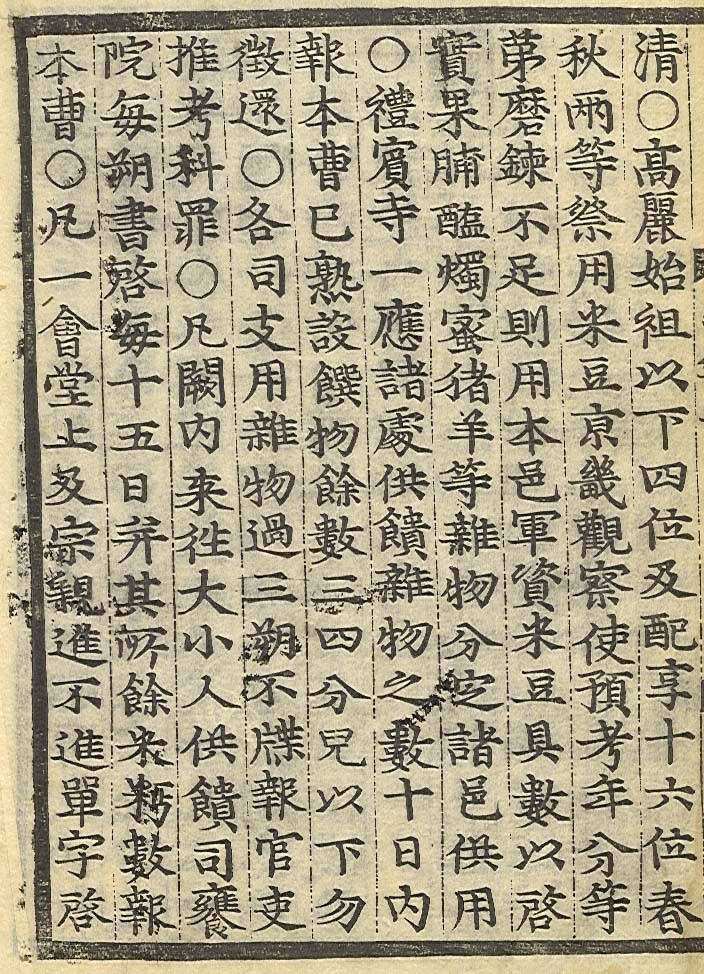 清○高麗始祖以下四位及配享十六位春
秋兩等祭用米豆京畿觀察使預考年分等
苐磨鍊不足則用本邑軍資米豆具數以啓
實果脯醢燭蜜猪羊等雜物分定諸邑供用
○禮賓寺一應諸處供饋雜物之數十日內
報本曹已熟設饌物餘數三四分兒以下勿
徵還○各司支用雜物過三朔不牒報官吏
推考科罪○凡闕內來往大小人供饋司饔
院每朔書啓每十五日幷其所餘米麪數報
本曹○凡一會堂上及宗親進不進單字啓